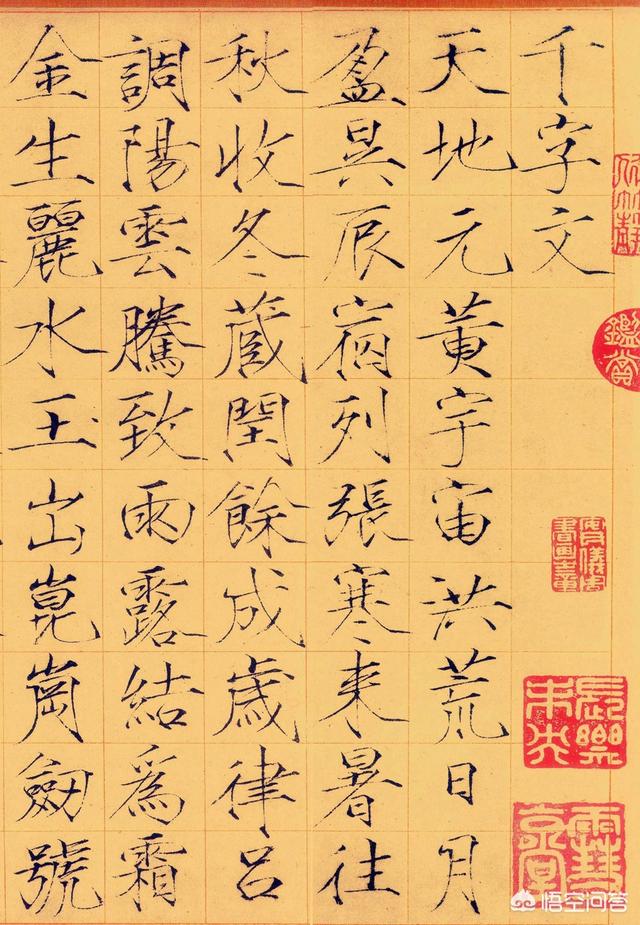 千字文
天地元黄宇宙洪荒日月
盈昃辰宿列張寒来暑往
秋收冬蔵閏餘成歲律吕
調陽雲騰致雨露結爲霜
金生麗水玉出崑崗劒號
鑑賞
長樂未央
悟空问答